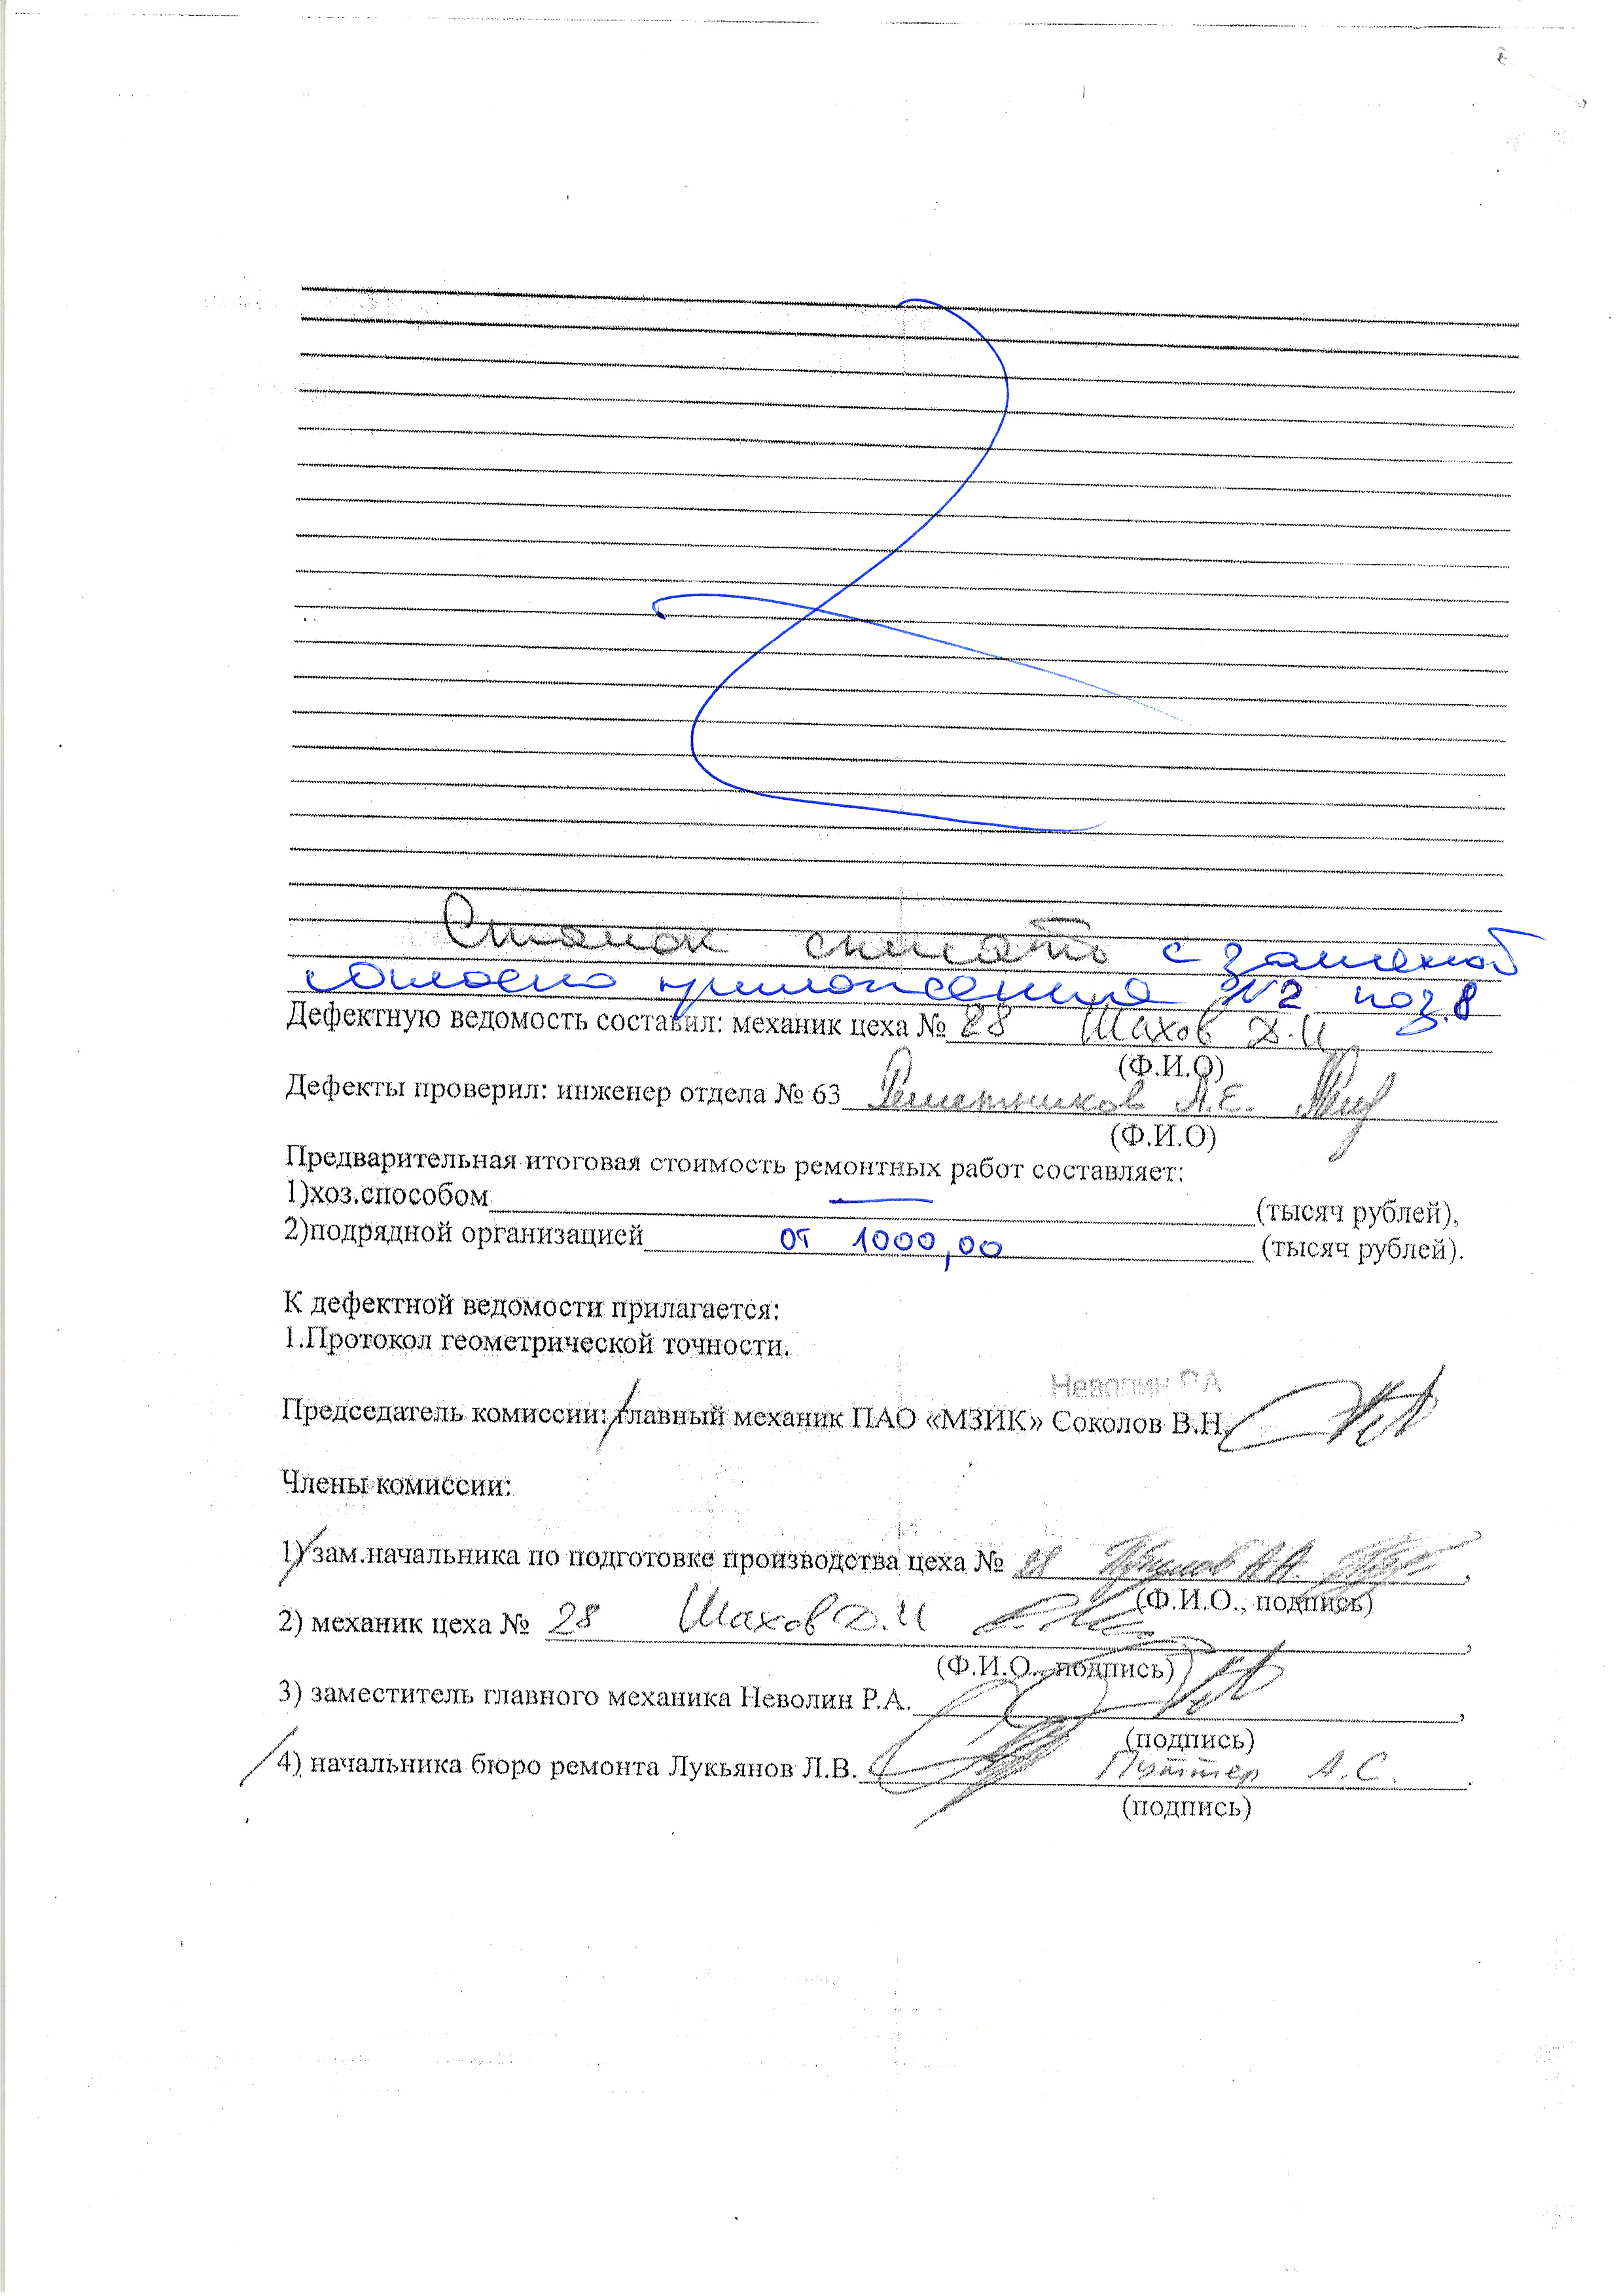 Станок списать с заменой
согласно приложения №2 поз.8
Дефектную ведомость составил: механик цеха № 28 Шахов Д.И
(Ф.И.О)
Дефекты проверил: инженер отдела № 63 Решетников А.Е.
(Ф.И.О)
Предварительная итоговая стоимость ремонтных работ составляет:
1)хоз.способом — (тысяч рублей),
2)подрядной организацией от 1000,00 (тысяч рублей).
К дефектной ведомости прилагается:
1.Протокол геометрической точности.
Неволин Р.А
Председатель комиссии: главный механик ПАО «МЗИК» Соколов В.Н.
Члены комиссии:
1) зам.начальника по подготовке производства цеха № 28
(Ф.И.О., подпись)
2) механик цеха № 28 Шахов Д.И
(Ф.И.О., подпись)
3) заместитель главного механика Неволин Р.А.
(подпись)
4) начальника бюро ремонта Лукьянов Л.В. Путтер А.С.
(подпись)